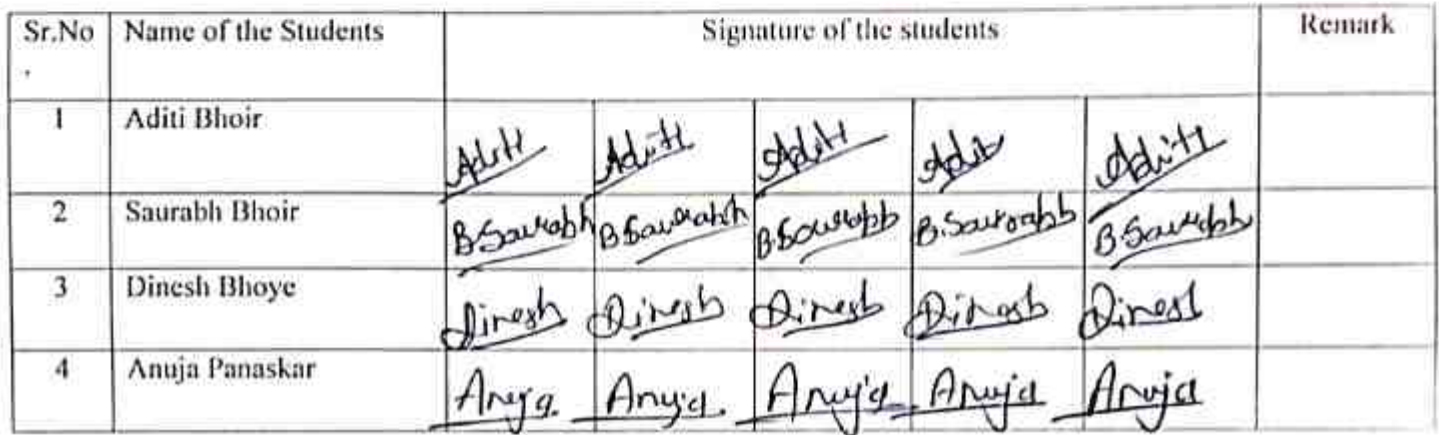 Sr.No Name of the Students Signature of the students Remark
.
1 Aditi Bhoir Aditi Aditi Aditi Aditi Aditi
2 Saurabh Bhoir B.Saurabh B.Saurabh B.Saurabh B.Saurabh B.Saurabh
3 Dinesh Bhoye Dinesh Dinesh Dinesh Dinesh Dinesh
4 Anuja Panaskar Anuja. Anuja. Anuja Anuja Anuja